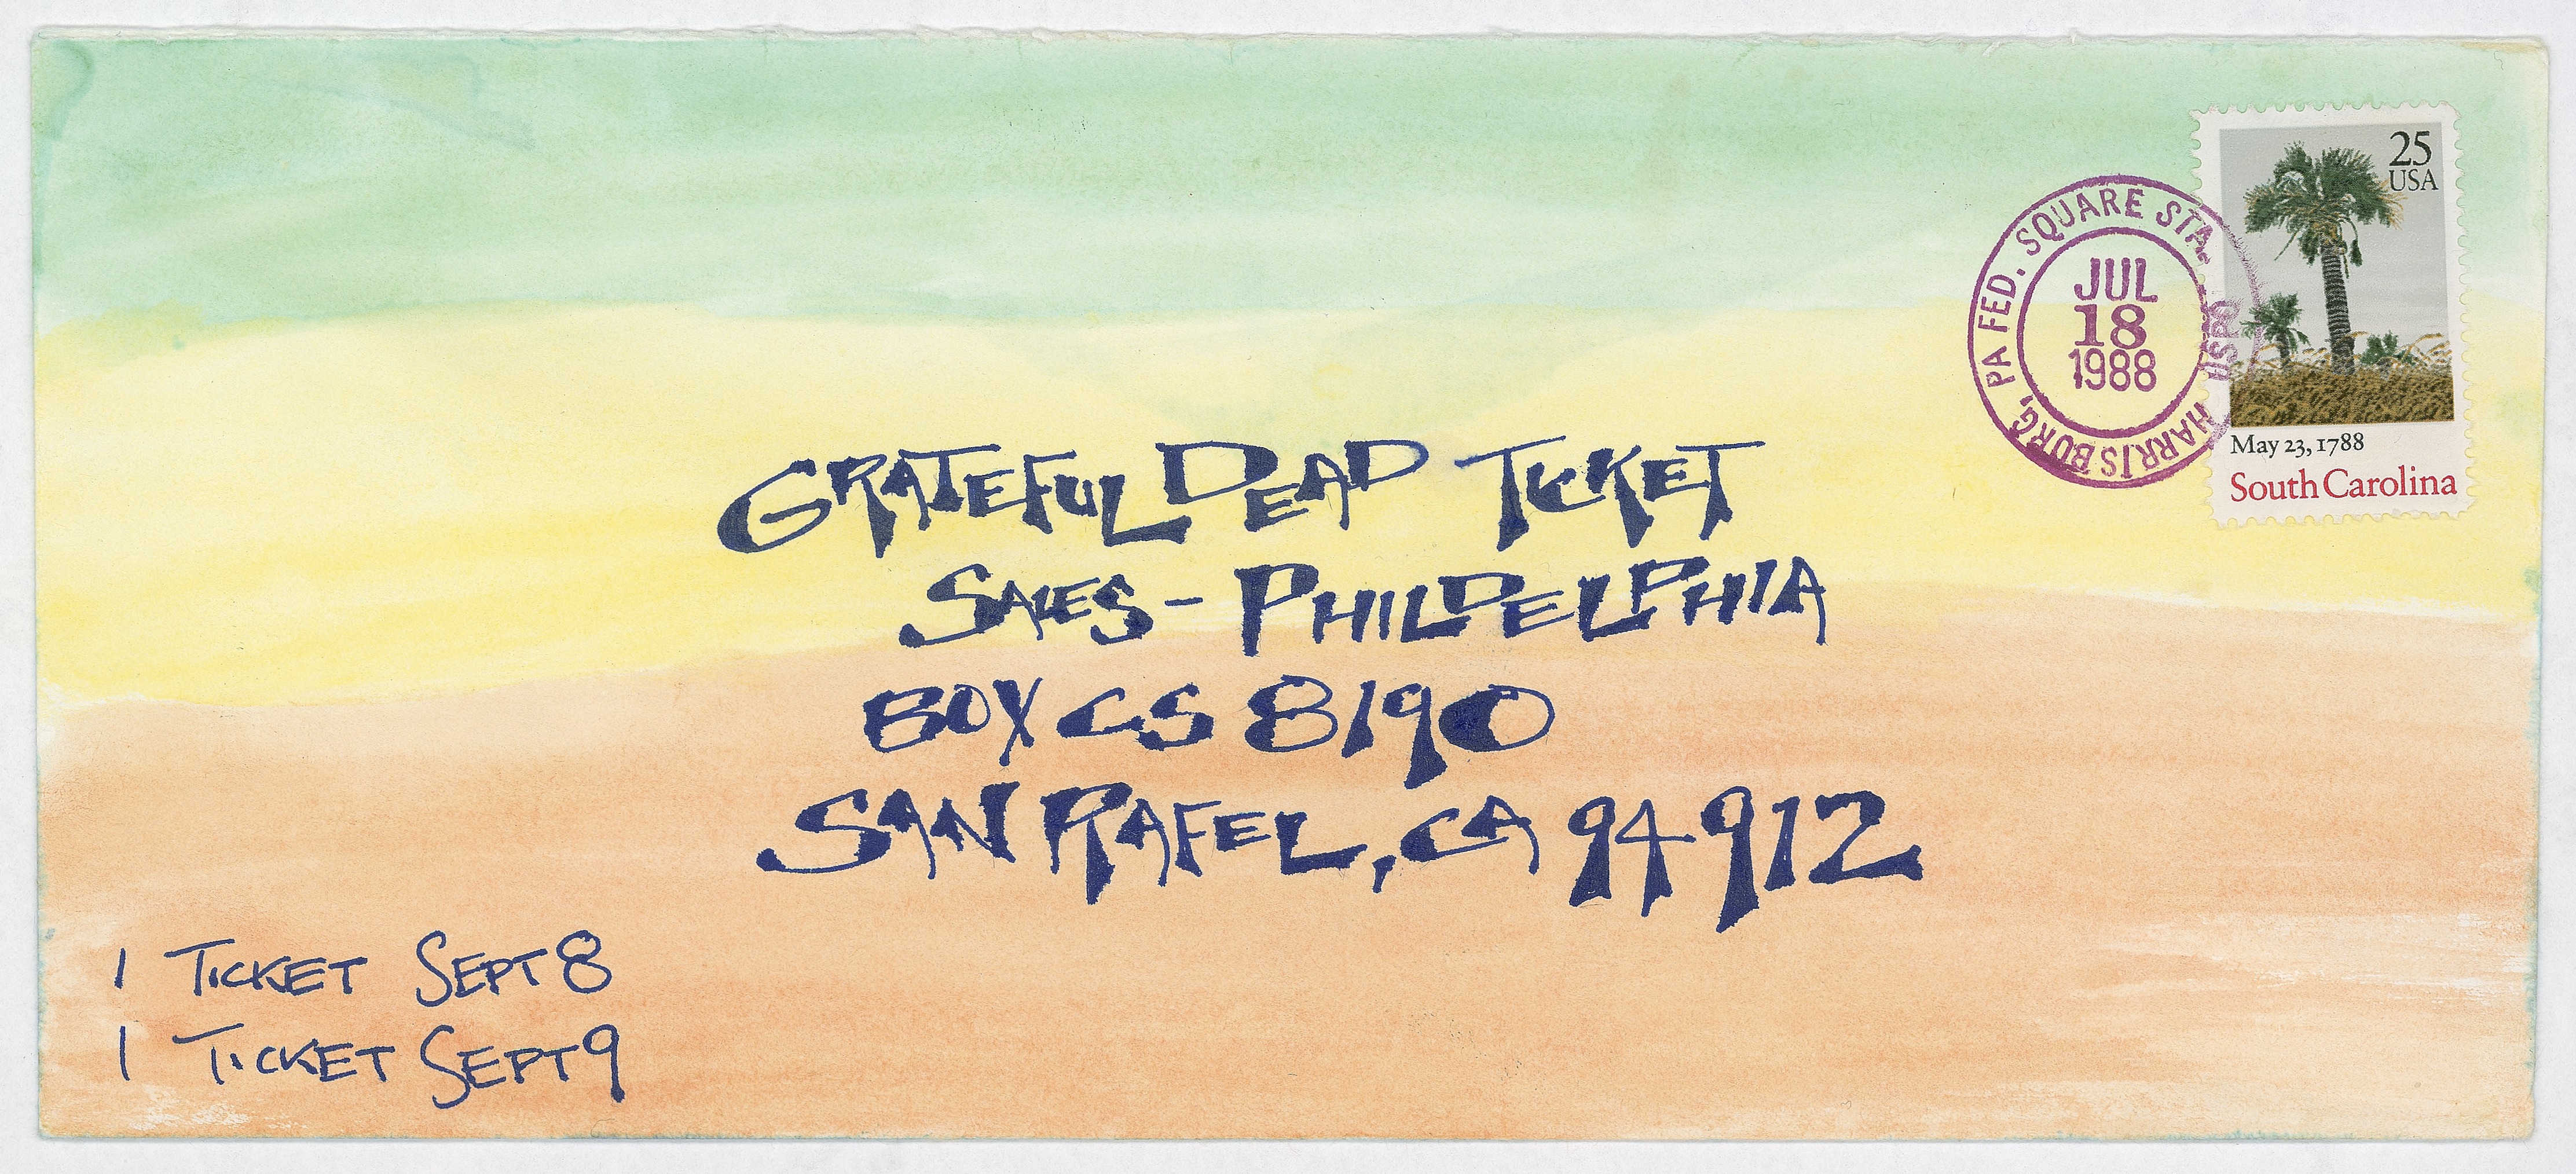 25
USA
HARRISBURG, PA FED. SQUARE STA.
USPO
JUL
18
1988
May 23, 1788
South Carolina
GRATEFUL DEAD TICKET
SALES - PHILDELPHIA
BOX CS 8190
SAN RAFEL, CA 94912
1 TICKET SEPT 8
1 TICKET SEPT 9